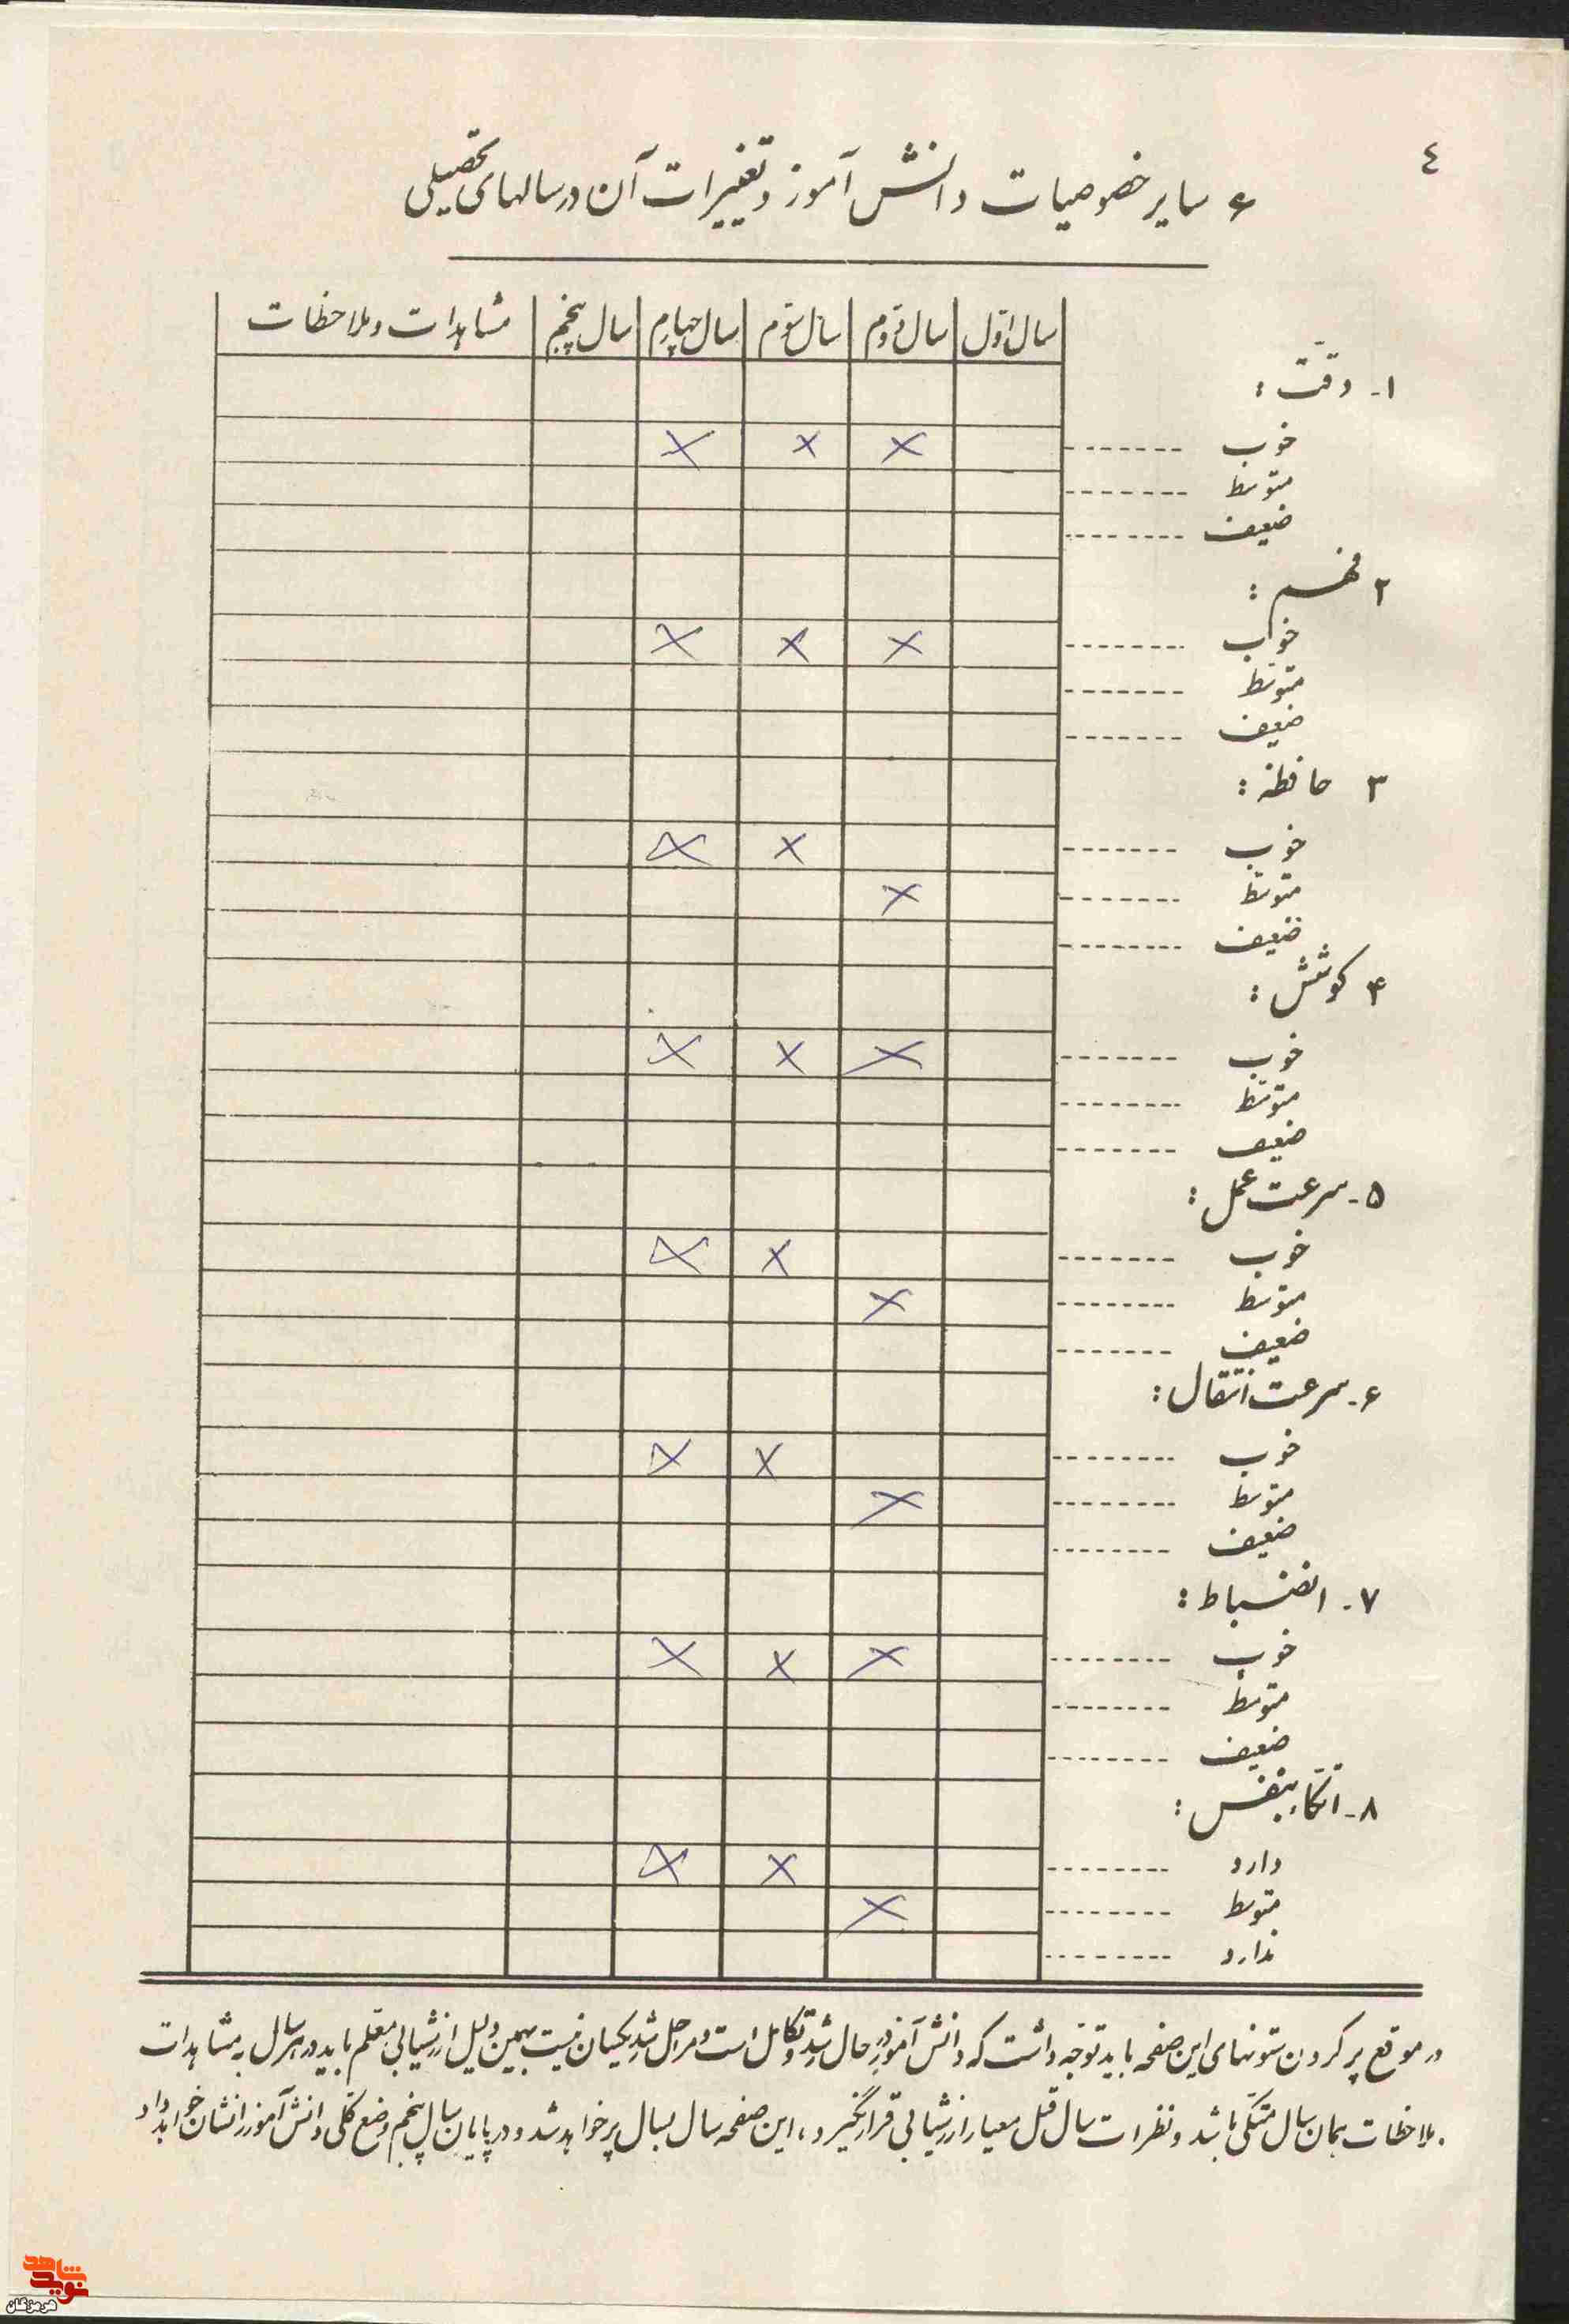 ٤
۶ سایر خصوصیات دانش آموز و تغییرات آن در سالهای تحصیلی
سال اوّل سال دوّم سال سوّم سال چهارم سال پنجم مشاهدات و ملاحظات
۱- دقّت :
خوب -------- × × ×
متوسط --------
ضعیف --------
۲ فهم :
خوب -------- × × ×
متوسط --------
ضعیف --------
۳ حافظه :
خوب -------- × ×
متوسط -------- ×
ضعیف --------
۴ کوشش :
خوب -------- × × ×
متوسط --------
ضعیف --------
۵- سرعت عمل :
خوب -------- × ×
متوسط -------- ×
ضعیف --------
۶- سرعت انتقال :
خوب -------- × ×
متوسط -------- ×
ضعیف --------
۷- انضباط :
خوب -------- × × ×
متوسط --------
ضعیف --------
۸- اتّکاء بنفس :
دارد -------- × ×
متوسط -------- ×
ندارد --------
در موقع پر کردن ستونهای این صفحه باید توجّه داشت که دانش آموز در حال رشد و تکامل است و مراحل رشد یکسان نیست بهمین دلیل ارزشیابی معلّم باید در هر سال به مشاهدات
و ملاحظات همان سال متّکی باشد و نظرات سال قبل معیار ارزشیابی قرار نگیرد ، این صفحه سال بسال پر خواهد شد و در پایان سال پنجم وضع کلّی دانش آموز را نشان خواهد داد
شاهد
نوید
هرمزگان